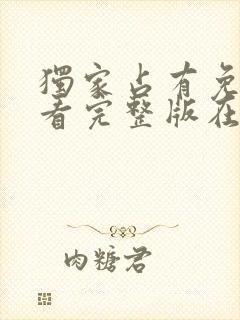 獨家占有免
看完整版在
肉糖君